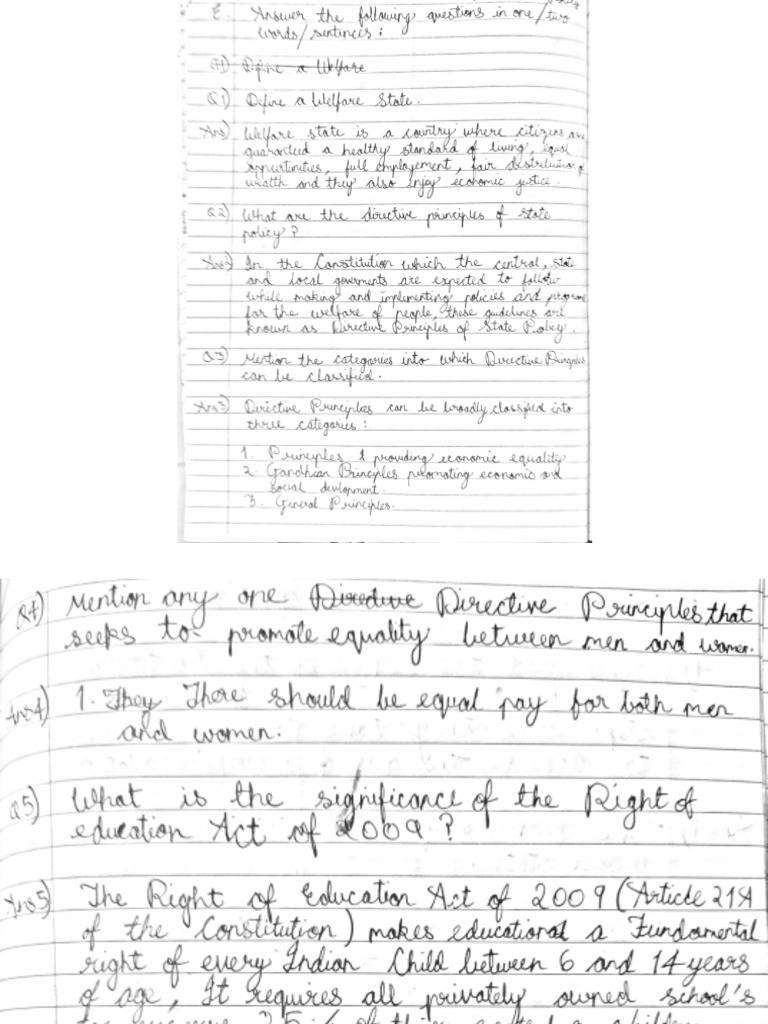 E. Answer the following questions in one/two
words/sentences:
Q1) Define a Welfare
Q1) Define a Welfare State.
Ans) Welfare state is a country where citizens are
guaranteed a healthy standard of living, equal
oppurtinities, full employement, fair distribution of
wealth and they also enjoy economic justice.
Q2) What are the directive principles of state
policy?
Ans2) In the Constitution which the central, state
and local goverments are expected to follow
while making and implementing policies and program
for the welfare of people, these guidelines are
known as Directive Principles of State Policy.
Q3) Mention the categories into which Directive Principles
can be classified.
Ans3) Directive Principles can be broadly classified into
three categories:
1. Principles providing economic equality
2. Gandhian Principles promoting economic and
social development.
3. General Principles.
Q4) Mention any one Directive Directive Principles that
seeks to promote equality between men and women.
Ans4) 1. They There should be equal pay for both men
and women.
Q5) What is the significance of the Right of
education Act of 2009?
Ans5) The Right of Education Act of 2009 (Article 21A
of the Constitution) makes educational a Fundamental
right of every Indian Child between 6 and 14 years
of age, It requires all privately owned school's
25% of